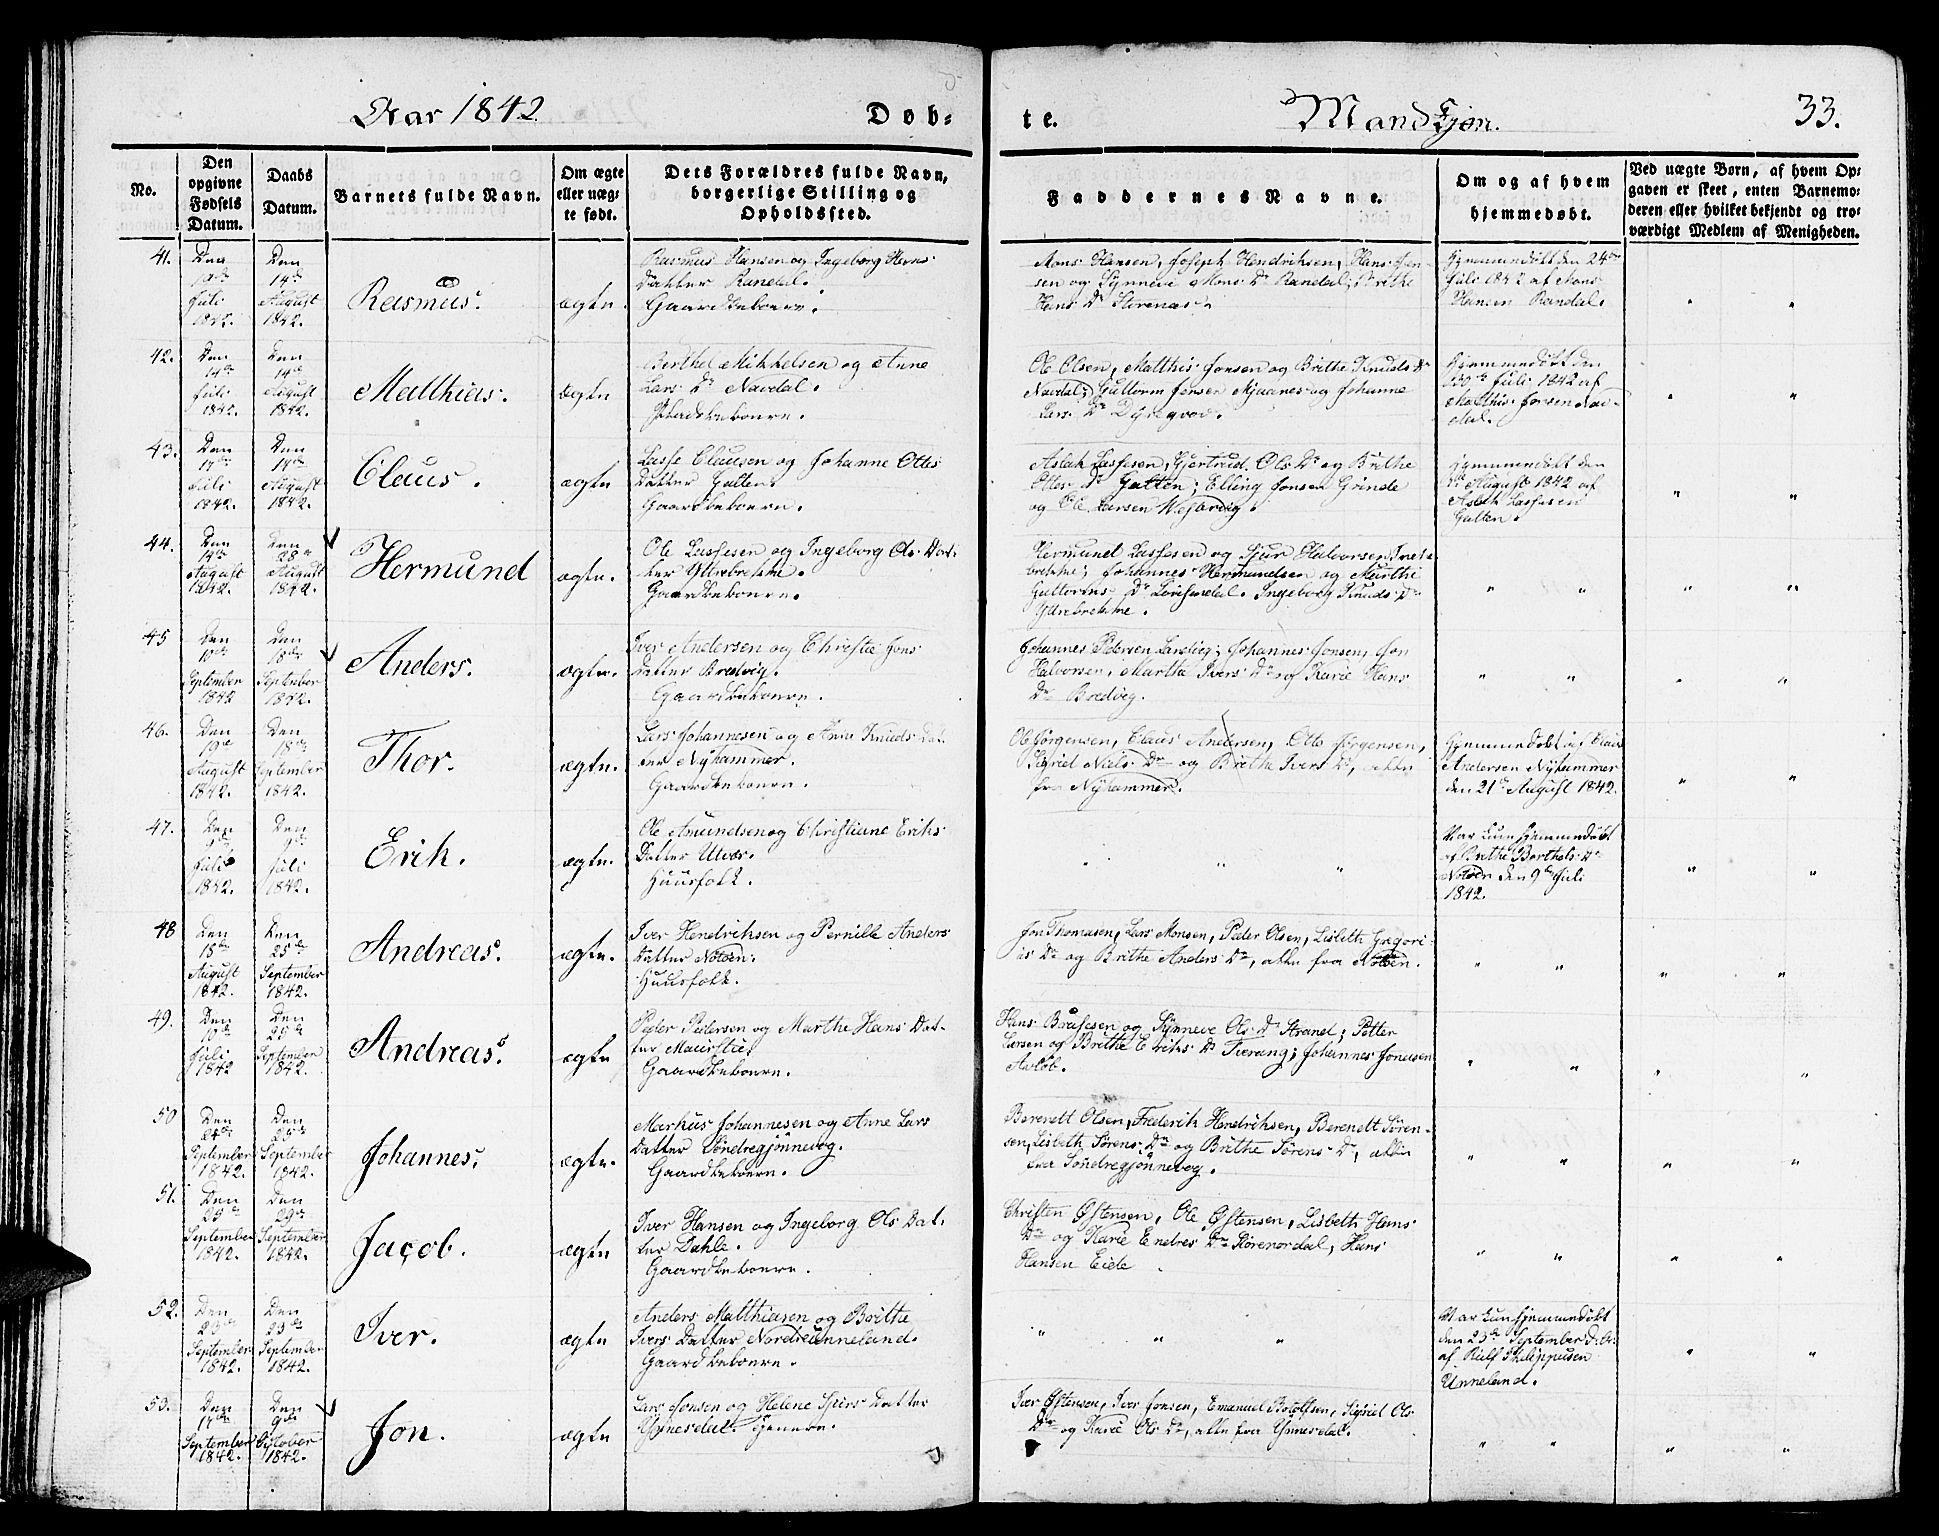 Aar 1842.
Døb-
te.
Mandkjøn.
33.
No.
Den
opgivne
Fødsels
Datum.
Daabs
Datum.
Barnets fulde Navn.
Om ægte
eller uæg-
te født.
Dets Forældres fulde Navn,
borgerlige Stilling og
Opholdssted.
Faddernes Navne.
Om og af hvem
hjemmedøbt.
Ved uægte Børn, af hvem Op-
gaven er skeet, enten Barnemo-
deren eller hvilket bekjendt og tro-
værdigt Medlem af Menigheden.
41.
Den
Juli
1842.
Den
14de
August
1842.
Rasmus.
ægte.
Rasmus Hansen og Ingeborg Hans
Datter Randal.
Gaardbeboere.
Mons Hansen, Joseph Hendriksen, Hans Jen-
sen og Synneve Mons Dr Randal; Brithe
Hans Dr
Hjemmedøbt den 24de
Juli 1842 af Mons
Hansen Randal.
42.
Den
14de
Juli
1842.
Den
14de
August
1842.
Matthias.
ægte
Berthel Mikkelsen og Anne
Lars Dr Navdal.
Gaardbeboere.
Ole Olsen, Matthis Jonsen og Brithe Knuds Dr
Navdal; Guttorm Jensen og Johanne
Lars Dr
Hjemmedøbt den
30te Juli 1842 af
Matthis Jonsen Nav-
dal.
43.
Den
17de
Juli
1842.
Den
14de
August
1842.
Claus.
ægte
Lasse Clausen og Johanne Ottes
Datter Galten.
Gaardbeboere.
Aslak Lassesen, Gjertrud Ols Dr og Brithe
Ottes Dr Galten; Elling Jonsen Grinde
og Ole Larsen
Hjemmedøbt den
August 1842 af
Aslak Lassesen
Galten.
44.
Den
14de
August
1842.
Den
28de
August
1842.
Hermund
ægte.
Ole Lassesen og Ingeborg Ols Dat-
ter Ytrebrekke.
Gaardbeboere.
Hermund Lassesen og Sjur Halvorsen
brekke; Johannes Hermundsen og Marthe
Guttorms Dr Ingeborg Knuds Dr
Ytrebrekke.
45
Den
10de
September
1842
Den
18de
September
1842.
Anders.
ægte.
Iver Andersen og Christie Jons
Datter Bredvig.
Gaardbeboere.
Johannes Pedersen Landvig; Johannes Jonsen, Jon
Halvorsen, Marthe Ivers Dr og Karie Hans
Dr Bredvig.
46.
Den
19de
August
1842.
Den
18de
September
1842.
Thor.
ægte.
Lars Johannesen og Anne Knuds Dat-
ter Nyhammer.
Gaardbeboere.
Ole Jørgensen, Claus Andersen, Otto Jørgensen,
Sigrid Niels Dr og Brithe Ivers Dr, alle
fra Nyhammer.
Hjemmedøbt af Claus
Andersen Nyhammer
den 21de August 1842.
47.
Den
9de
Juli
1842.
Den
9de
Juli
1842.
Erik.
ægte.
Ole Amundsen og Christiane Eriks
Datter Utvær.
Huusfolk.
Var kun hjemmedøbt
af Brithe Berthels Dr
Notøen den 9de Juli
1842.
48
Den
15de
August
1842.
Den
25de
September
1842.
Andreas.
ægte.
Iver Hendriksen og Pernille Anders
Datter Notøen.
Huusfolk.
Jon Thomasen, Lars Monsen, Peder Olsen, Lisbeth Gregori-
us Dr og Brithe Anders Dr, alle fra Notøen.
49.
Den
10de
Juli
1842
Den
29de
September
1842.
Andreas.
ægte
Peder Pedersen og Marthe Hans Dat-
ter
Gaardbeboere.
Hans Brusesen og Synneve Ols Dr Strand; Petter
Larsen og Brithe Eriks Dr Tverang; Johannes Jonasen
Avløb.
50
Den
24de
September
1842.
Den
29de
September
1842.
Johannes.
ægte.
Markus Johannesen og Anne Lars
Datter Søndregjønnevog.
Gaardbeboere.
Berenett Olsen, Frederik Hendriksen, Berenett Søren-
sen, Lisbeth Sørens Dr og Brithe Sørens Dr, alle
fra Søndregjønnevog.
51.
Den
25de
September
1842.
Den
29de
September
1842.
Jacob.
ægte
Iver Hansen og Ingeborg Ols Dat-
ter Dahle.
Gaardbeboere.
Christen Østensen, Ole Østensen, Lisbeth Hans
Dr og Karie Endres Dr Hans
Hansen Eide
52.
Den
23de
September
1842.
Den
23de
September
1842.
Iver.
ægte
Anders Matthiasen og Brithe
Ivers Datter Nordreunneland.
Gaardbeboere.
Var kun hjemmedøbt
den 23de September d: A:
af Philippusen
Unneland.
53.
Den
17de
September
1842.
Den
9de
October
1842.
Jon.
ægte
Lars Jonsen og Helene Sjurs Datter
Ynnesdal. Tjenere.
Iver Østensen, Iver Jonsen, Emanuel Botolfsen, Sigrid Ols
Dr og Karie Ols Dr, alle fra Ynnesdal.